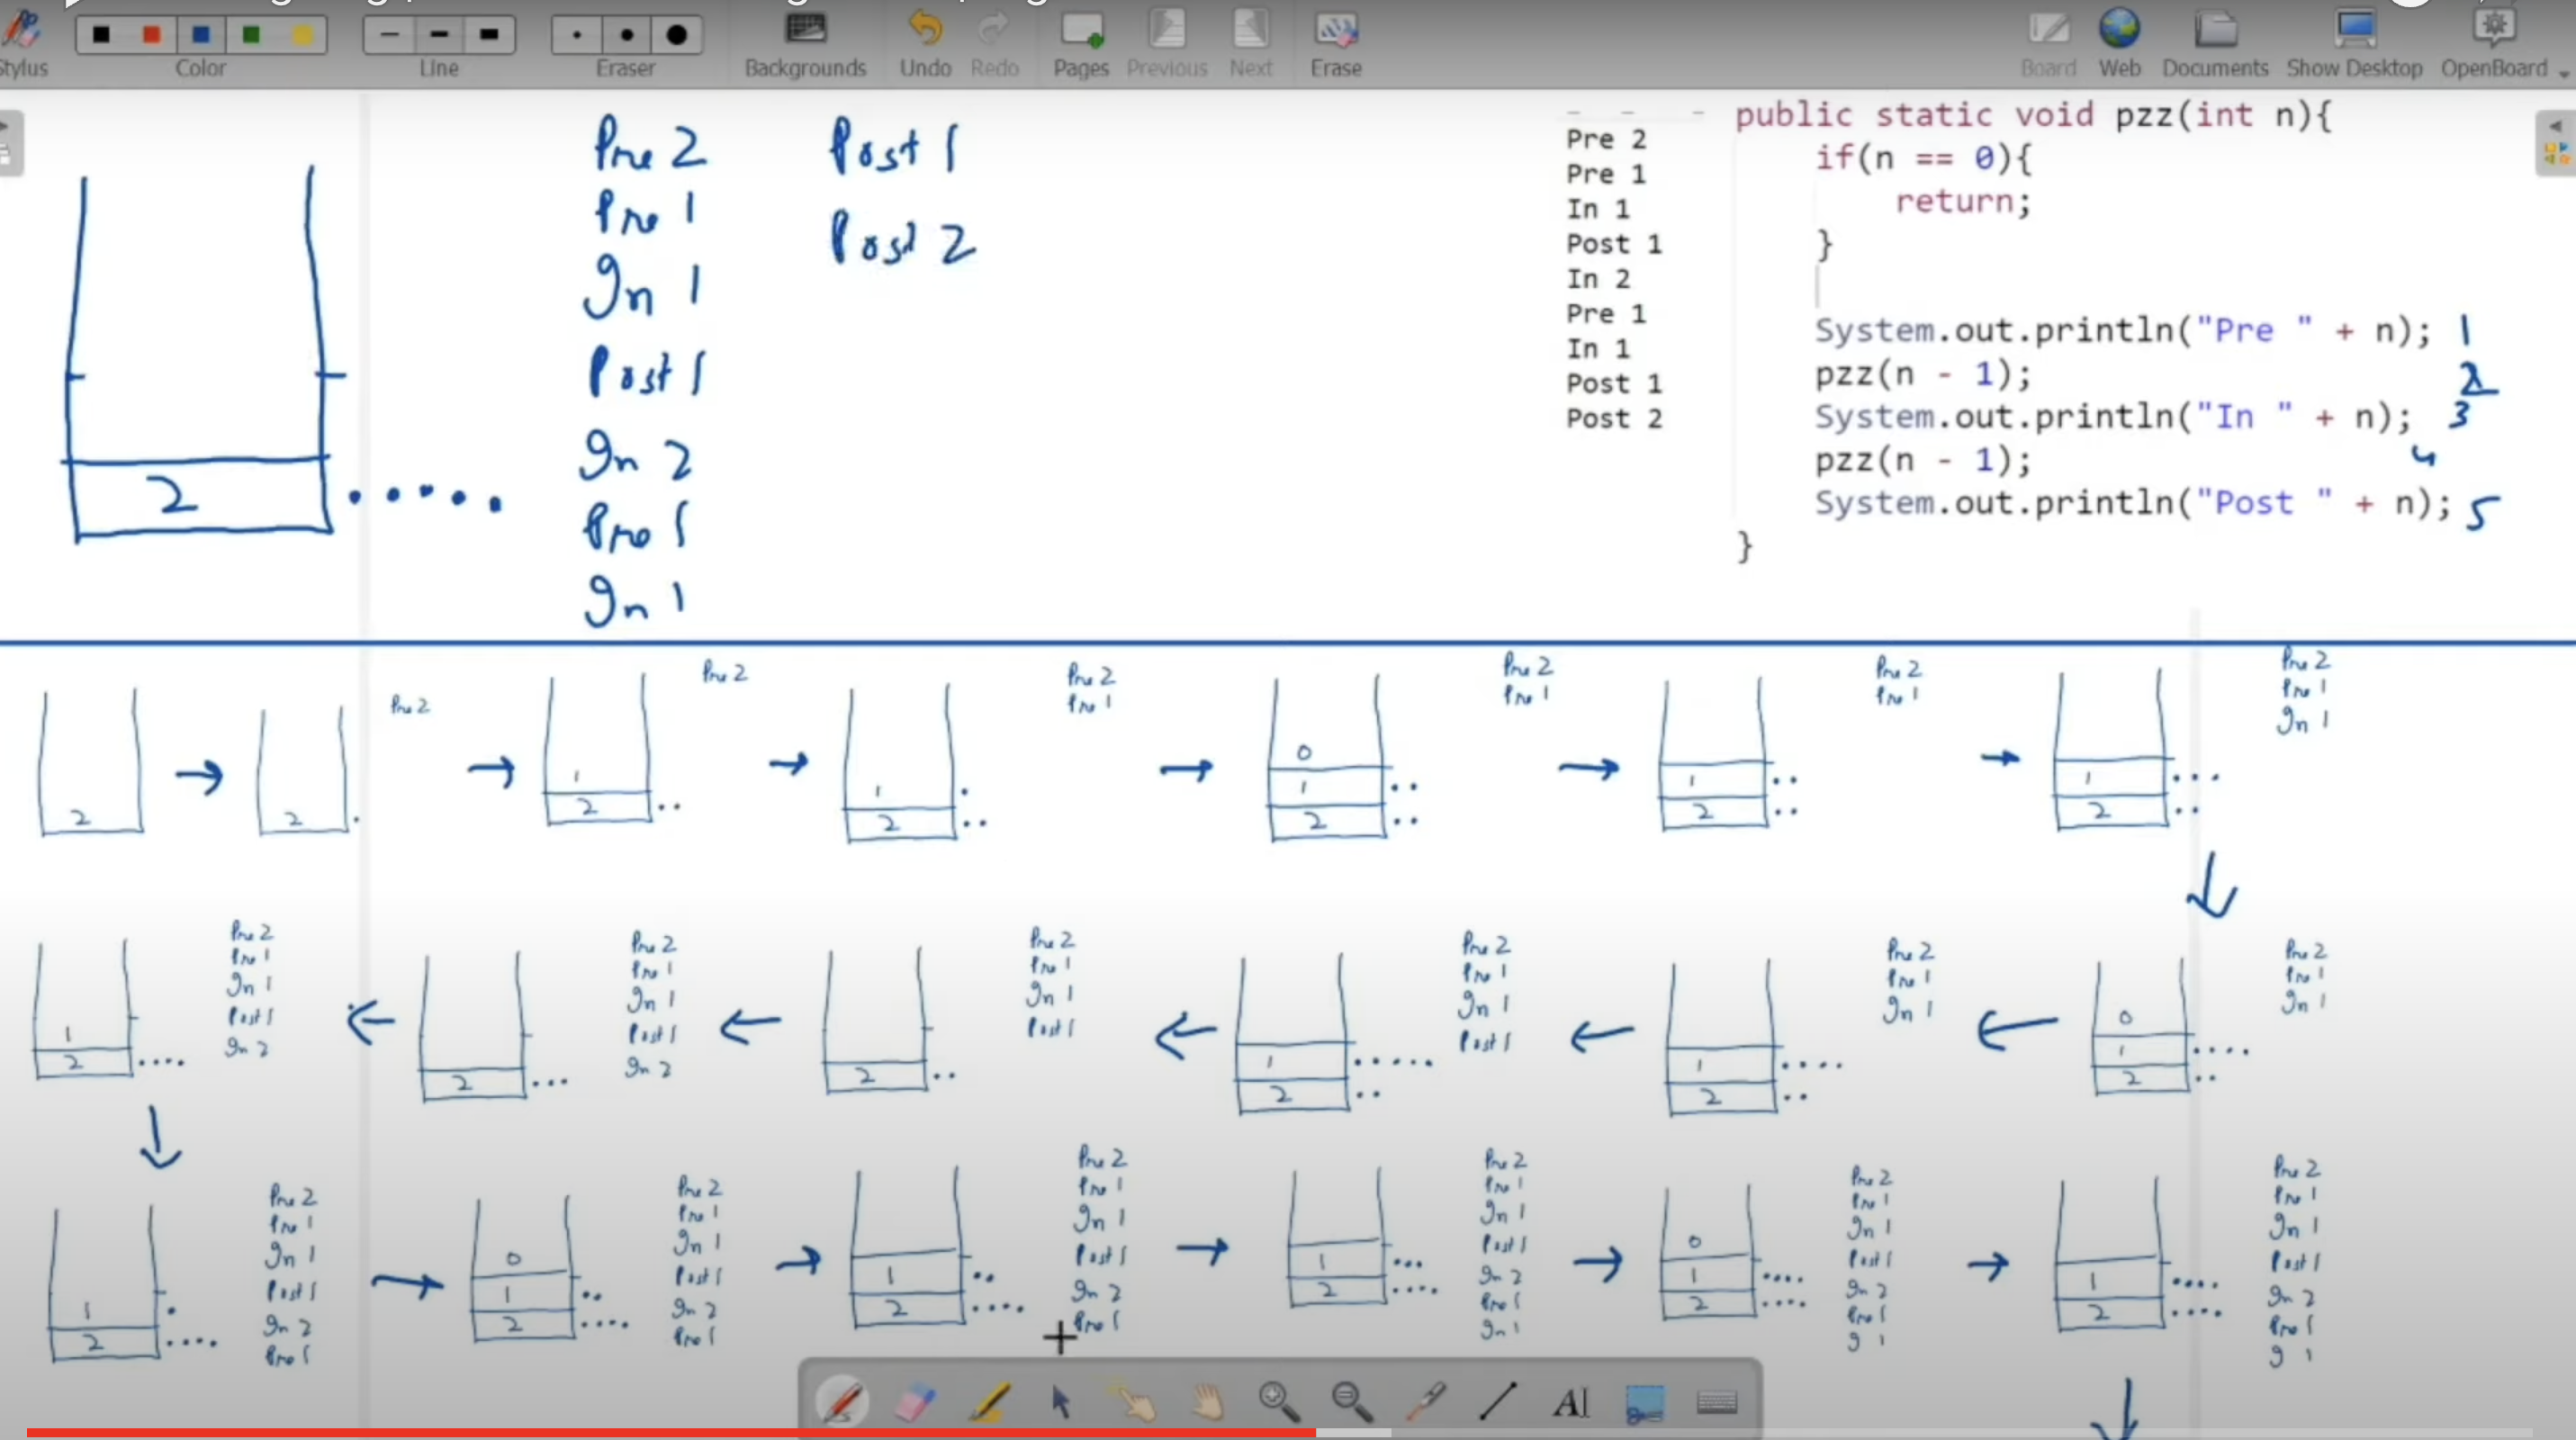 Stylus
Color
Line
Eraser
Backgrounds
Undo
Redo
Pages
Previous
Next
Erase
Board
Web
Documents
Show Desktop
OpenBoard
Pre 2
Pre 1
In 1
Post 1
In 2
Pre 1
In 1
Post 1
Post 2
Pre 2
Pre 1
In 1
Post 1
In 2
Pre 1
In 1
Post 1
Post 2
public static void pzz(int n){
if(n == 0){
return;
}
System.out.println("Pre " + n); 1
pzz(n - 1); 2
System.out.println("In " + n); 3
pzz(n - 1); 4
System.out.println("Post " + n); 5
}
2
2
2
Pre 2
1
2
Pre 2
1
2
Pre 2
Pre 1
0
1
2
Pre 2
Pre 1
1
2
Pre 2
Pre 1
1
2
Pre 2
Pre 1
In 1
1
2
Pre 2
Pre 1
In 1
Post 1
In 2
2
Pre 2
Pre 1
In 1
Post 1
In 2
2
Pre 2
Pre 1
In 1
Post 1
1
2
Pre 2
Pre 1
In 1
Post 1
1
2
Pre 2
Pre 1
In 1
0
1
2
Pre 2
Pre 1
In 1
1
2
Pre 2
Pre 1
In 1
Post 1
In 2
Pre 1
0
1
2
Pre 2
Pre 1
In 1
Post 1
In 2
Pre 1
1
2
Pre 2
Pre 1
In 1
Post 1
In 2
Pre 1
1
2
Pre 2
Pre 1
In 1
Post 1
In 2
Pre 1
In 1
0
1
2
Pre 2
Pre 1
In 1
Post 1
In 2
Pre 1
1
2
Pre 2
Pre 1
In 1
Post 1
In 2
Pre 1
AI